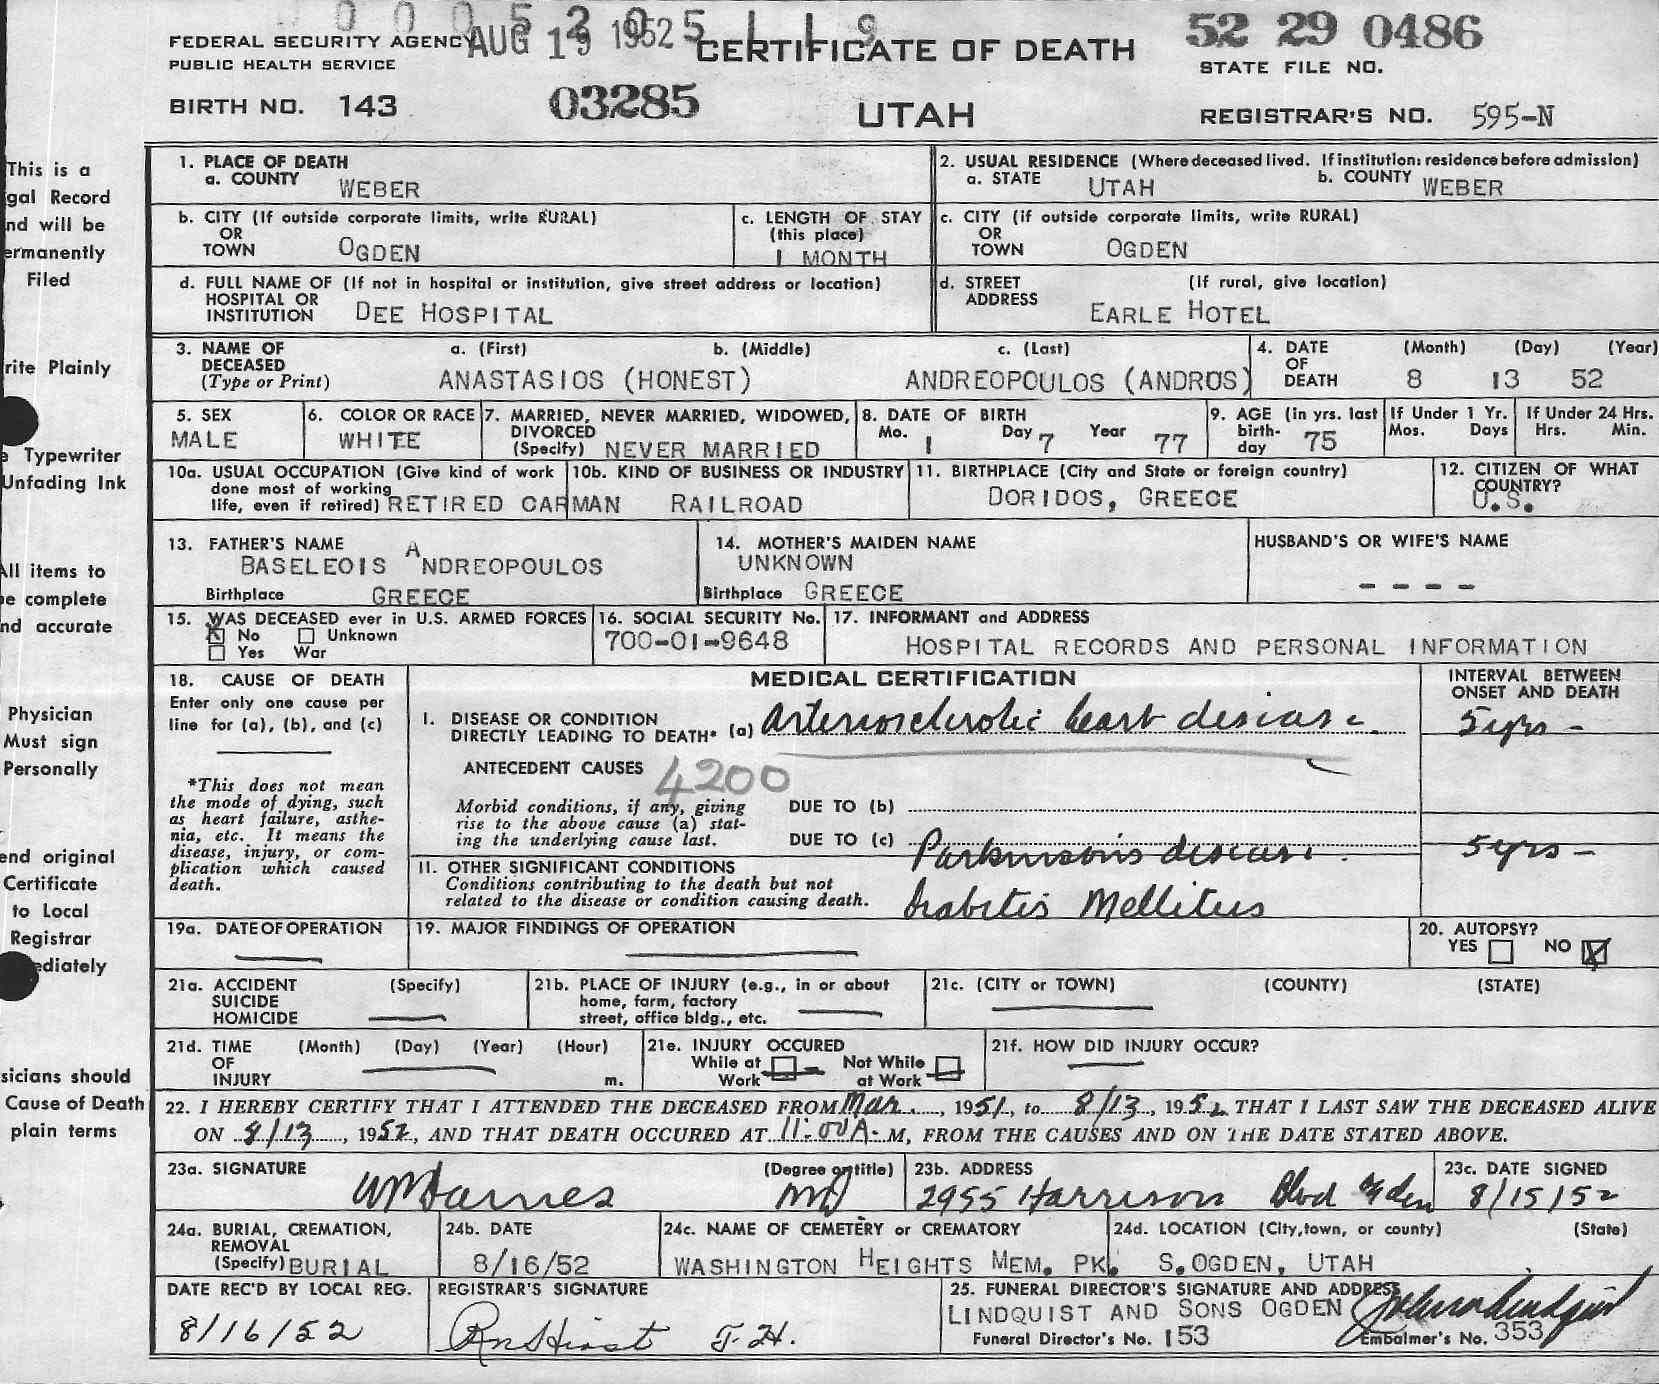 0 0 0 5 2 0 5 1 1 9
AUG 19 1952
FEDERAL SECURITY AGENCY
PUBLIC HEALTH SERVICE
CERTIFICATE OF DEATH
52 29 0486
STATE FILE NO.
BIRTH NO. 143
03285
UTAH
REGISTRAR'S NO. 595-N
This is a
gal Record
nd will be
ermanently
Filed
rite Plainly
e Typewriter
Unfading Ink
All items to
be complete
nd accurate
Physician
Must sign
Personally
end original
Certificate
to Local
Registrar
ediately
sicians should
Cause of Death
plain terms
1. PLACE OF DEATH
a. COUNTY WEBER
2. USUAL RESIDENCE (Where deceased lived. If institution: residence before admission)
a. STATE UTAH b. COUNTY WEBER
b. CITY (If outside corporate limits, write RURAL)
OR
TOWN OGDEN
c. LENGTH OF STAY
(this place)
1 MONTH
c. CITY (if outside corporate limits, write RURAL)
OR
TOWN OGDEN
d. FULL NAME OF (If not in hospital or institution, give street address or location)
HOSPITAL OR
INSTITUTION DEE HOSPITAL
d. STREET (If rural, give location)
ADDRESS
EARLE HOTEL
3. NAME OF a. (First) b. (Middle) c. (Last)
DECEASED
(Type or Print) ANASTASIOS (HONEST) ANDREOPOULOS (ANDROS)
4. DATE (Month) (Day) (Year)
OF
DEATH 8 13 52
5. SEX
MALE
6. COLOR OR RACE
WHITE
7. MARRIED, NEVER MARRIED, WIDOWED,
DIVORCED
(Specify) NEVER MARRIED
8. DATE OF BIRTH
Mo. 1 Day 7 Year 77
9. AGE (in yrs. last
birth-
day 75
If Under 1 Yr.
Mos. Days
If Under 24 Hrs.
Hrs. Min.
10a. USUAL OCCUPATION (Give kind of work
done most of working
life, even if retired) RETIRED CARMAN
10b. KIND OF BUSINESS OR INDUSTRY
RAILROAD
11. BIRTHPLACE (City and State or foreign country)
DORIDOS, GREECE
12. CITIZEN OF WHAT
COUNTRY?
U.S.
13. FATHER'S NAME
BASELEOIS ANDREOPOULOS
Birthplace GREECE
14. MOTHER'S MAIDEN NAME
UNKNOWN
Birthplace GREECE
HUSBAND'S OR WIFE'S NAME
----
15. WAS DECEASED ever in U.S. ARMED FORCES
No Unknown
Yes War
16. SOCIAL SECURITY No.
700-01-9648
17. INFORMANT and ADDRESS
HOSPITAL RECORDS AND PERSONAL INFORMATION
18. CAUSE OF DEATH
Enter only one cause per
line for (a), (b), and (c)
*This does not mean
the mode of dying, such
as heart failure, asthe-
nia, etc. It means the
disease, injury, or com-
plication which caused
death.
MEDICAL CERTIFICATION
INTERVAL BETWEEN
ONSET AND DEATH
I. DISEASE OR CONDITION
DIRECTLY LEADING TO DEATH* (a) Arteriosclerotic heart disease 5 yrs -
ANTECEDENT CAUSES 4200
Morbid conditions, if any, giving
rise to the above cause (a) stat-
ing the underlying cause last.
DUE TO (b)
DUE TO (c) Parkinson's disease. 5 yrs -
II. OTHER SIGNIFICANT CONDITIONS
Conditions contributing to the death but not
related to the disease or condition causing death. Diabetis Mellitus
19a. DATE OF OPERATION
19. MAJOR FINDINGS OF OPERATION
20. AUTOPSY?
YES NO X
21a. ACCIDENT (Specify)
SUICIDE
HOMICIDE
21b. PLACE OF INJURY (e.g., in or about
home, farm, factory
street, office bldg., etc.
21c. (CITY or TOWN) (COUNTY) (STATE)
21d. TIME (Month) (Day) (Year) (Hour)
OF
INJURY m.
21e. INJURY OCCURED
While at Not While
Work at Work
21f. HOW DID INJURY OCCUR?
22. I HEREBY CERTIFY THAT I ATTENDED THE DECEASED FROM Mar., 1951, to 8/13, 1952 THAT I LAST SAW THE DECEASED ALIVE
ON 8/13, 1952, AND THAT DEATH OCCURED AT 11:00 A.M, FROM THE CAUSES AND ON THE DATE STATED ABOVE.
23a. SIGNATURE (Degree or title)
MD
23b. ADDRESS
2955 Harrison Blvd Ogden
23c. DATE SIGNED
8/15/52
24a. BURIAL, CREMATION,
REMOVAL
(Specify) BURIAL
24b. DATE
8/16/52
24c. NAME OF CEMETERY or CREMATORY
WASHINGTON HEIGHTS MEM. PK.
24d. LOCATION (City, town, or county) (State)
S. OGDEN, UTAH
DATE REC'D BY LOCAL REG.
8/16/52
REGISTRAR'S SIGNATURE
25. FUNERAL DIRECTOR'S SIGNATURE AND ADDRESS
LINDQUIST AND SONS OGDEN
Funeral Director's No. 153
Embalmer's No. 353